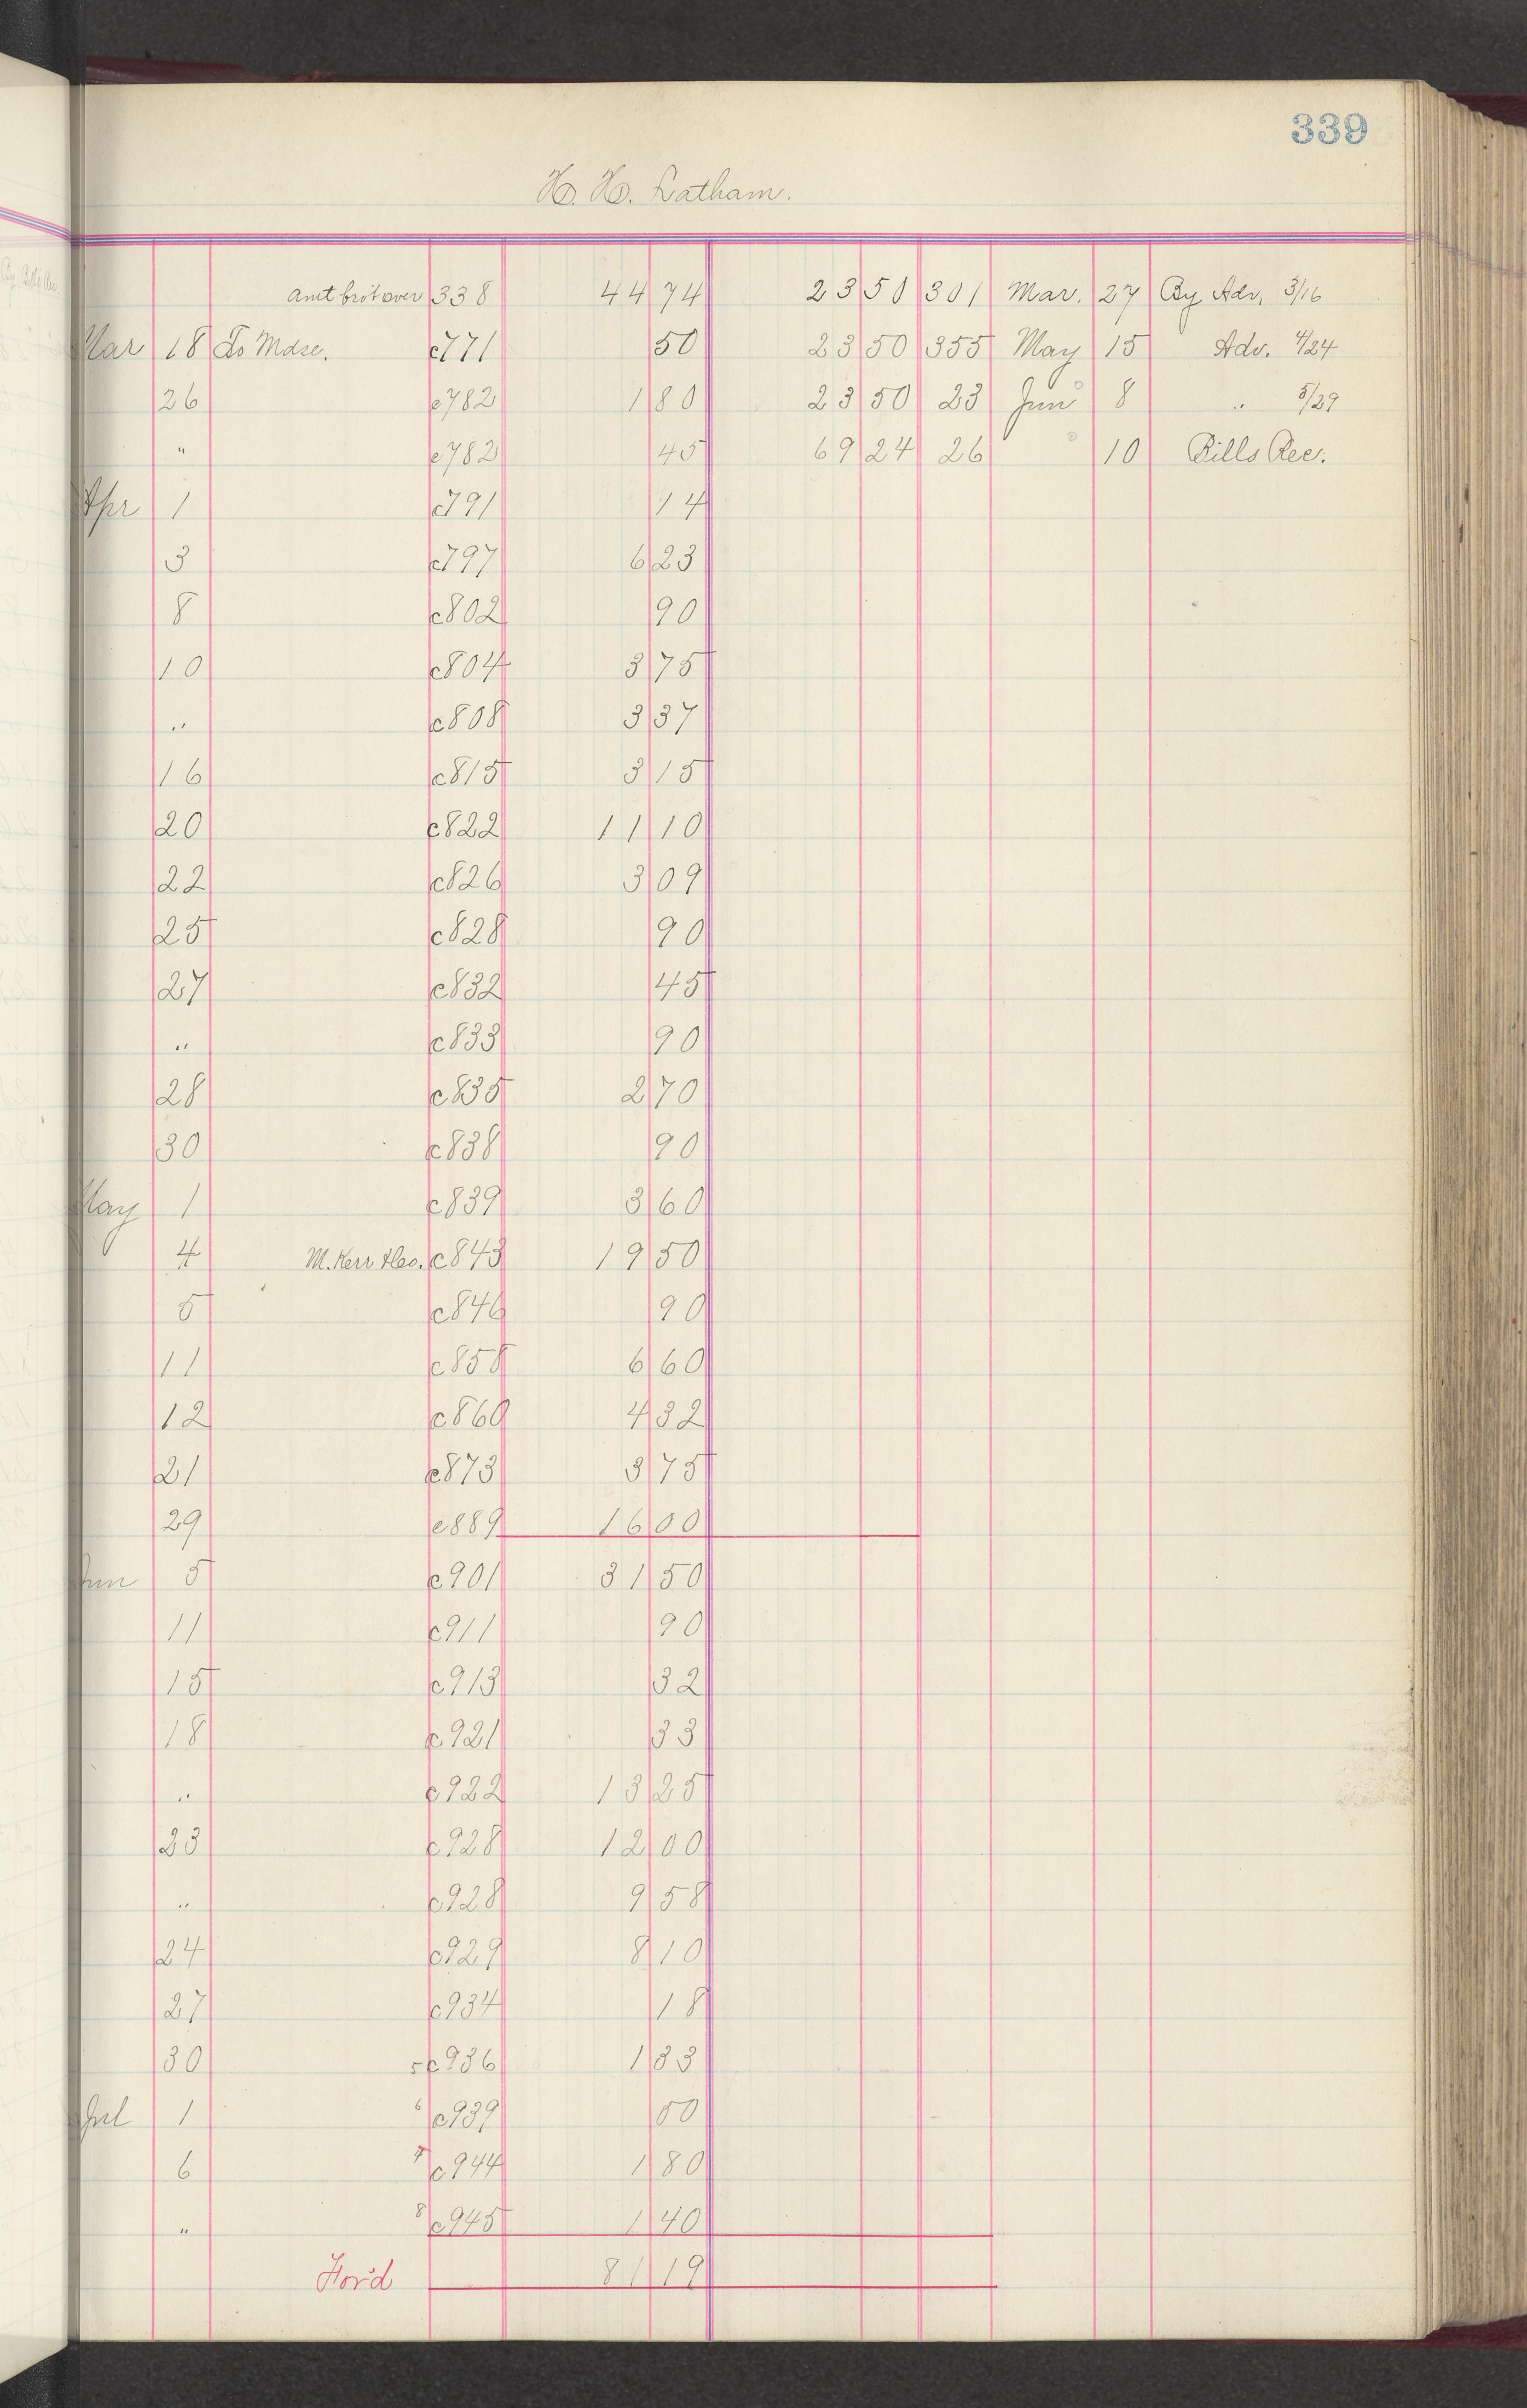 339
H. H. Latham.
Amt brot over 338 44 74 23 50 301 Mar. 27 By Adv. 3/16
Mar 18 To Mdse. c771 50 23 50 355 May 15 Adv. 4/24
26 c782 1 80 23 50 23 Jun 8 " 5/29
" c782 45 69 24 26 10 Bills Rec.
Apr 1 c791 14
3 c797 6 23
8 c802 90
10 c804 3 75
" c808 3 37
16 c815 3 15
20 c822 11 10
22 c826 3 09
25 c828 90
27 c832 45
" c833 90
28 c835 2 70
30 c838 90
May 1 c839 3 60
4 M. Kerr c843 19 50
5 c846 90
11 c858 6 60
12 c860 4 32
21 c873 3 75
29 c889 16 00
Jun 5 c901 31 50
11 c911 90
15 c913 32
18 c921 33
" c922 13 25
23 c928 12 00
" c928 9 58
24 c929 8 10
27 c934 18
30 5 c936 1 33
Jul 1 6 c939 50
6 7 c944 1 80
" 8 c945 1 40
For'd 81 19